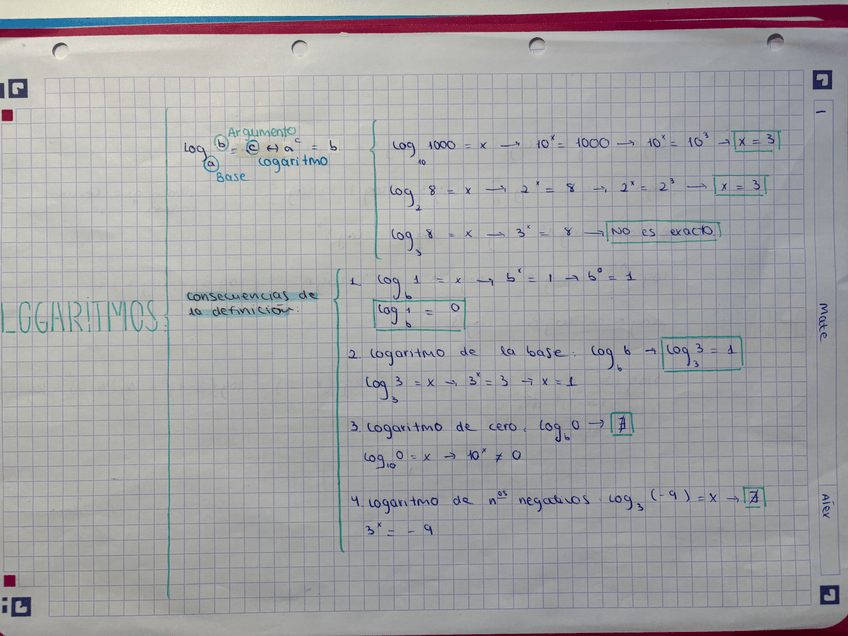 LOGARITMOS:
Argumento
log_a b = c ↔ a^c = b
Logaritmo
Base
log_10 1000 = x → 10^x = 1000 → 10^x = 10^3 → x = 3
log_2 8 = x → 2^x = 8 → 2^x = 2^3 → x = 3
log_3 8 = x → 3^x = 8 → No es exacto
consecuencias de
la definición.
1. log_b 1 = x → b^x = 1 → b^0 = 1
log_b 1 = 0
2. logaritmo de la base: log_b b → log_3 3 = 1
log_3 3 = x → 3^x = 3 → x = 1
3. logaritmo de cero: log_b 0 → ∄
log_10 0 = x → 10^x ≠ 0
4. logaritmo de n^os negativos: log_3 (-9) = x → ∄
3^x = - 9
Mate
Alex